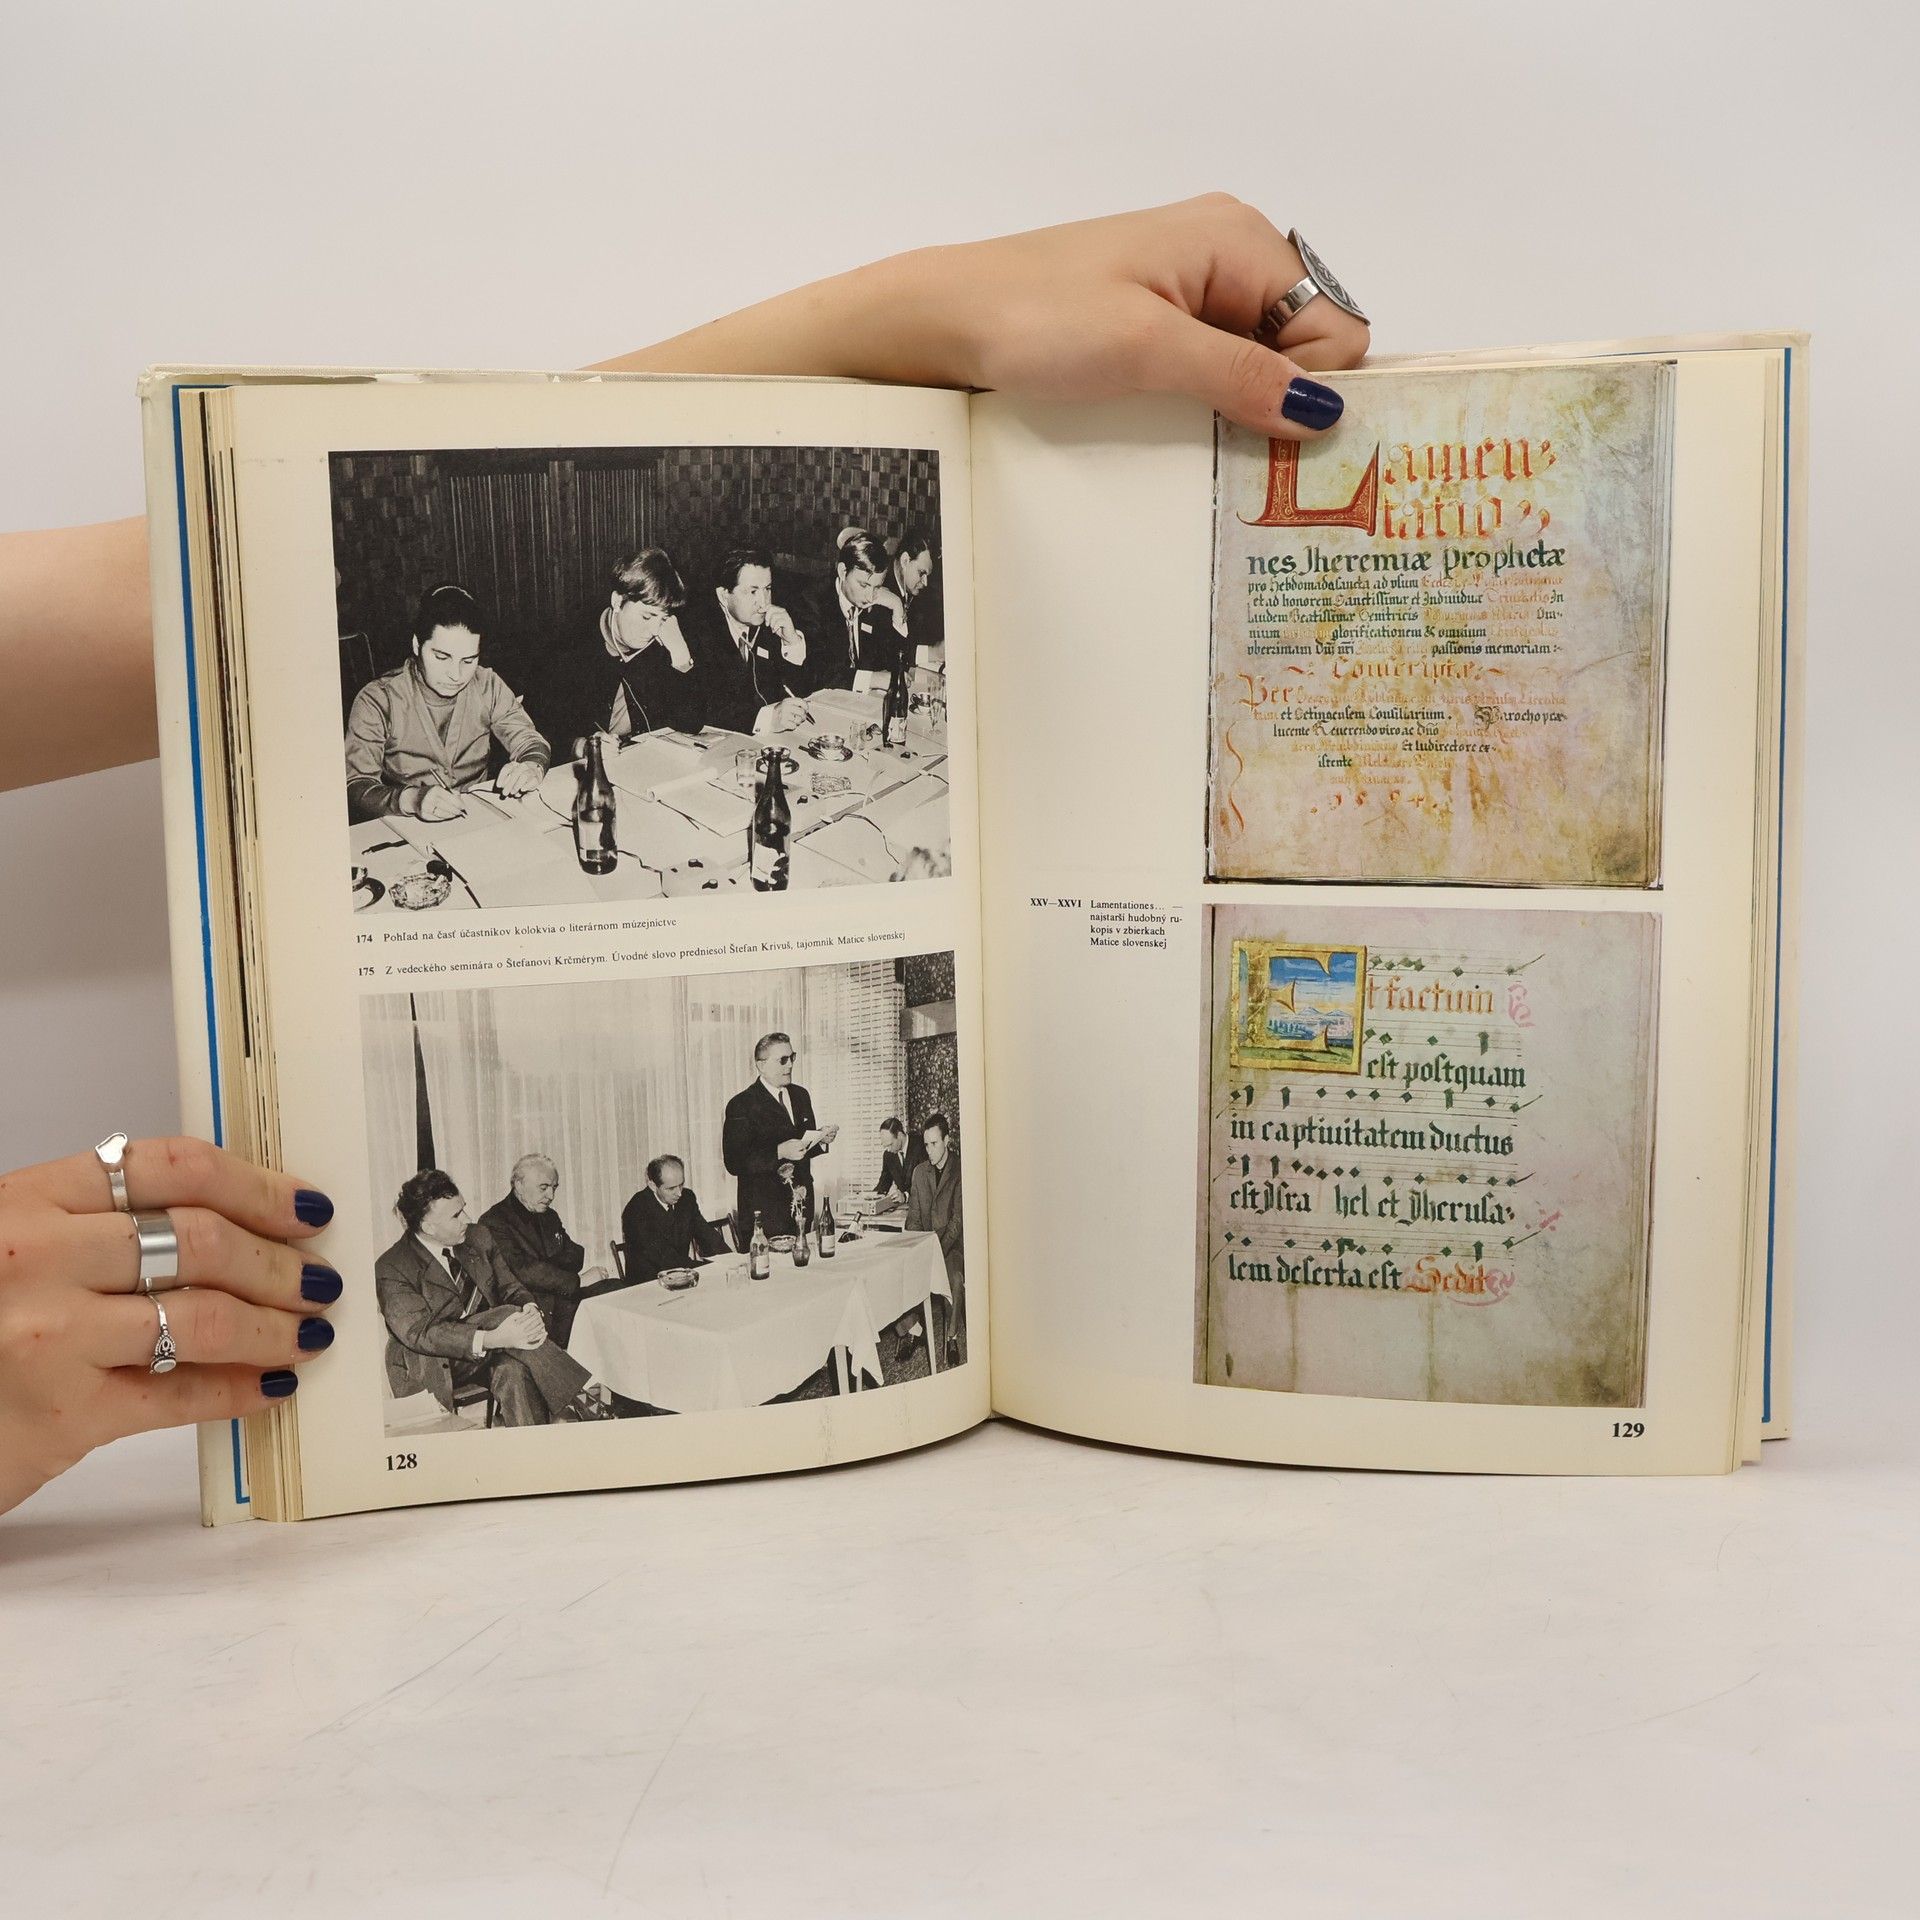 174 Pohľad na časť účastníkov kolokvia o literárnom múzejníctve
175 Z vedeckého seminára o Štefanovi Krčmérym. Úvodné slovo predniesol Štefan Krivuš, tajomník Matice slovenskej
128
Lamen-
tatio
nes Jheremiæ prophetæ
pro hebdomada sancta ad vsum
et ad honorem Sanctissimæ et Indiuiduæ Trinitatis In
laudem Beatissimæ Genitricis
nium glorificationem & omnium
vberrimam passionis memoriam:
Conscriptæ
Per
et Consiliarium. Parocho præ-
lucente Reuerendo viro ac
Et ludirectore ex-
istente
XXV—XXVI Lamentationes... —
najstarší hudobný ru-
kopis v zbierkach
Matice slovenskej
Et factum
est postquam
in captiuitatem ductus
est Jsra hel et Jherusa-
lem deserta est Sedit
129